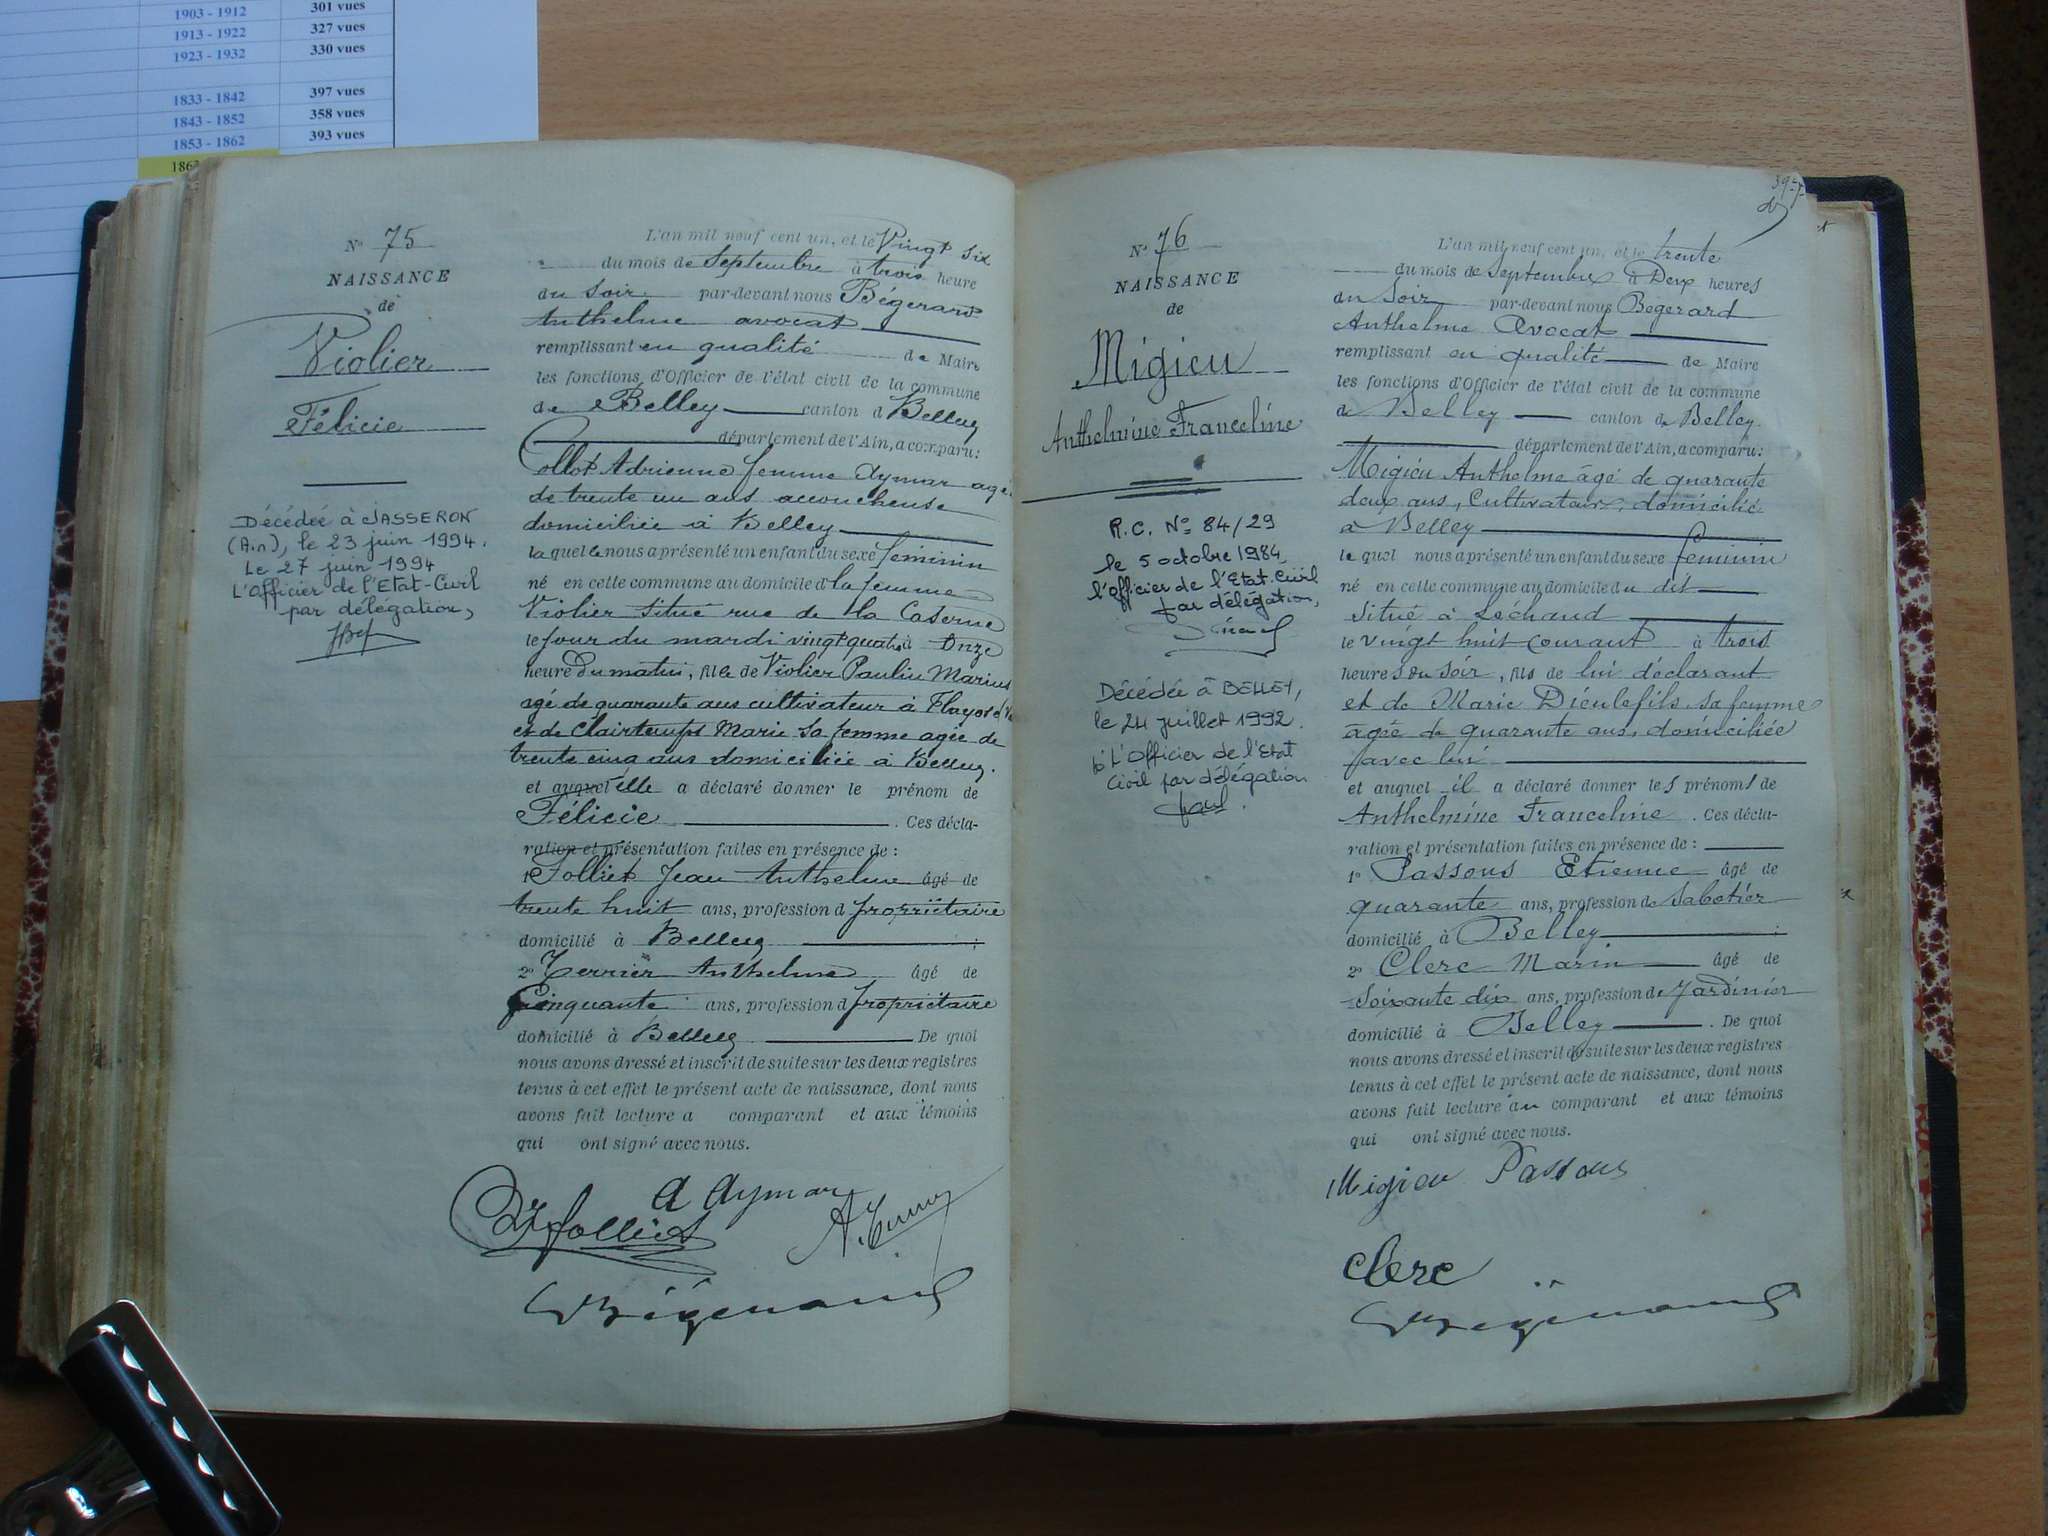 1903 - 1912 301 vues
1913 - 1922 327 vues
1923 - 1932 330 vues
1833 - 1842 397 vues
1843 - 1852 358 vues
1853 - 1862 393 vues
N° 75
NAISSANCE
de
Violier
Félicie
Décédée à JASSERON
(Ain), le 23 juin 1994.
Le 27 juin 1994
L'Officier de l'Etat-Civil
par délégation,
L'an mil neuf cent un, et le Vingt six
du mois de Septembre à trois heure
du Soir par-devant nous Bégerard
Anthelme avocat
remplissant en qualité de Maire
les fonctions d'Officier de l'état civil de la commune
de Belley canton d Belley
département de l'Ain, a comparu:
Collot Adrienne femme Aymar agée
de trente un ans accoucheuse
domiciliée à Belley
laquelle nous a présenté un enfant du sexe feminin
né en cette commune au domicile d la femme
Violier situé rue de la Caserne
le jour du mardi vingt quatre à Onze
heure du matin, fille de Violier Paulin Marius
agé de quarante ans cultivateur à Flayosc
et de Clairtemps Marie sa femme agée de
trente cinq ans domiciliée à Belley.
et auquel elle a déclaré donner le prénom de
Félicie . Ces décla-
ration et présentation faites en présence de :
1° Folliet Jean Anthelme âgé de
trente huit ans, profession d propriétaire
domicilié à Belley ;
2° Terrier Anthelme âgé de
Cinquante ans, profession d propriétaire
domicilié à Belley De quoi
nous avons dressé et inscrit de suite sur les deux registres
tenus à cet effet le présent acte de naissance, dont nous
avons fait lecture a comparant et aux témoins
qui ont signé avec nous.
A Aymar
Folliet
Bégerard
N° 76
NAISSANCE
de
Migieu
Anthelmine Franceline
R.C. N° 84/29
le 5 octobre 1984
l'officier de l'Etat-Civil
par délégation,
Décédée à BELLEY,
le 24 juillet 1992.
L'Officier de l'Etat
Civil par délégation
L'an mil neuf cent un, et le trente
du mois de Septembre à Deux heures
du Soir par-devant nous Bégerard
Anthelme Avocat
remplissant en qualité de Maire
les fonctions d'Officier de l'état civil de la commune
de Belley canton de Belley.
département de l'Ain, a comparu:
Migieu Anthelme âgé de quarante
deux ans, Cultivateur, domicilié
à Belley
lequel nous a présenté un enfant du sexe feminin
né en cette commune au domicile du dit
Situé à
le vingt huit courant à trois
heures du soir, fils de lui déclarant
et de Marie Dieulefils sa femme
âgée de quarante ans, domiciliée
avec lui
et auquel il a déclaré donner les prénoms de
Anthelmine Franceline . Ces décla-
ration et présentation faites en présence de :
1° Passons Etienne âgé de
quarante ans, profession de Sabotier
domicilié à Belley ;
2° Clerc Marin âgé de
Soixante dix ans, profession de Jardinier
domicilié à Belley . De quoi
nous avons dressé et inscrit de suite sur les deux registres
tenus à cet effet le présent acte de naissance, dont nous
avons fait lecture au comparant et aux témoins
qui ont signé avec nous.
Migieu Passons
Clerc
Bégerard